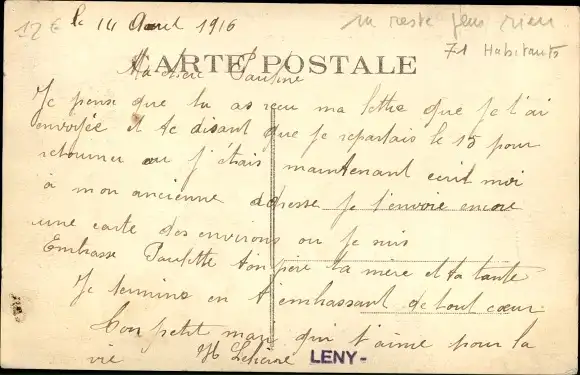 12 € le 14 Avril 1916
il reste plus rien
71 Habitants
CARTE POSTALE
Ma chère Pauline
Je pense que tu as reçu ma lettre que je t'ai
envoyée et te disant que je repartais le 15 pour
retourner ou j'étais maintenant ecrit moi
à mon ancienne adresse Je t'envoie encore
une carte des environs ou je suis
Embrasse Paulette ton père ta mère et ta tante
Je termine en t'embrassant de tout cœur.
Ton petit mari qui t'aime pour la
vie H
LENY-